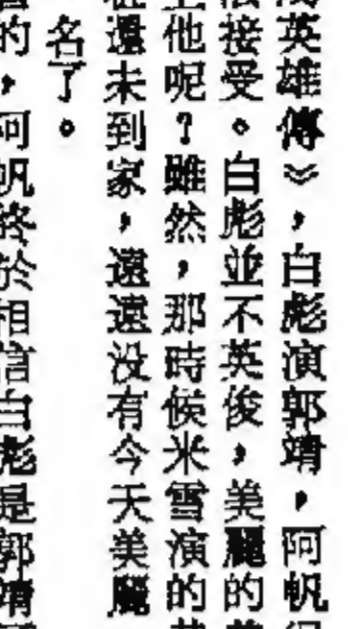 英雄傳》，白彪演郭靖，阿帆
接受。白彪並不英俊，美麗的
他呢？雖然，那時候米雪演的
還未到家，遠遠没有今天美麗
名了。
的，阿帆終於相信白彪是郭靖